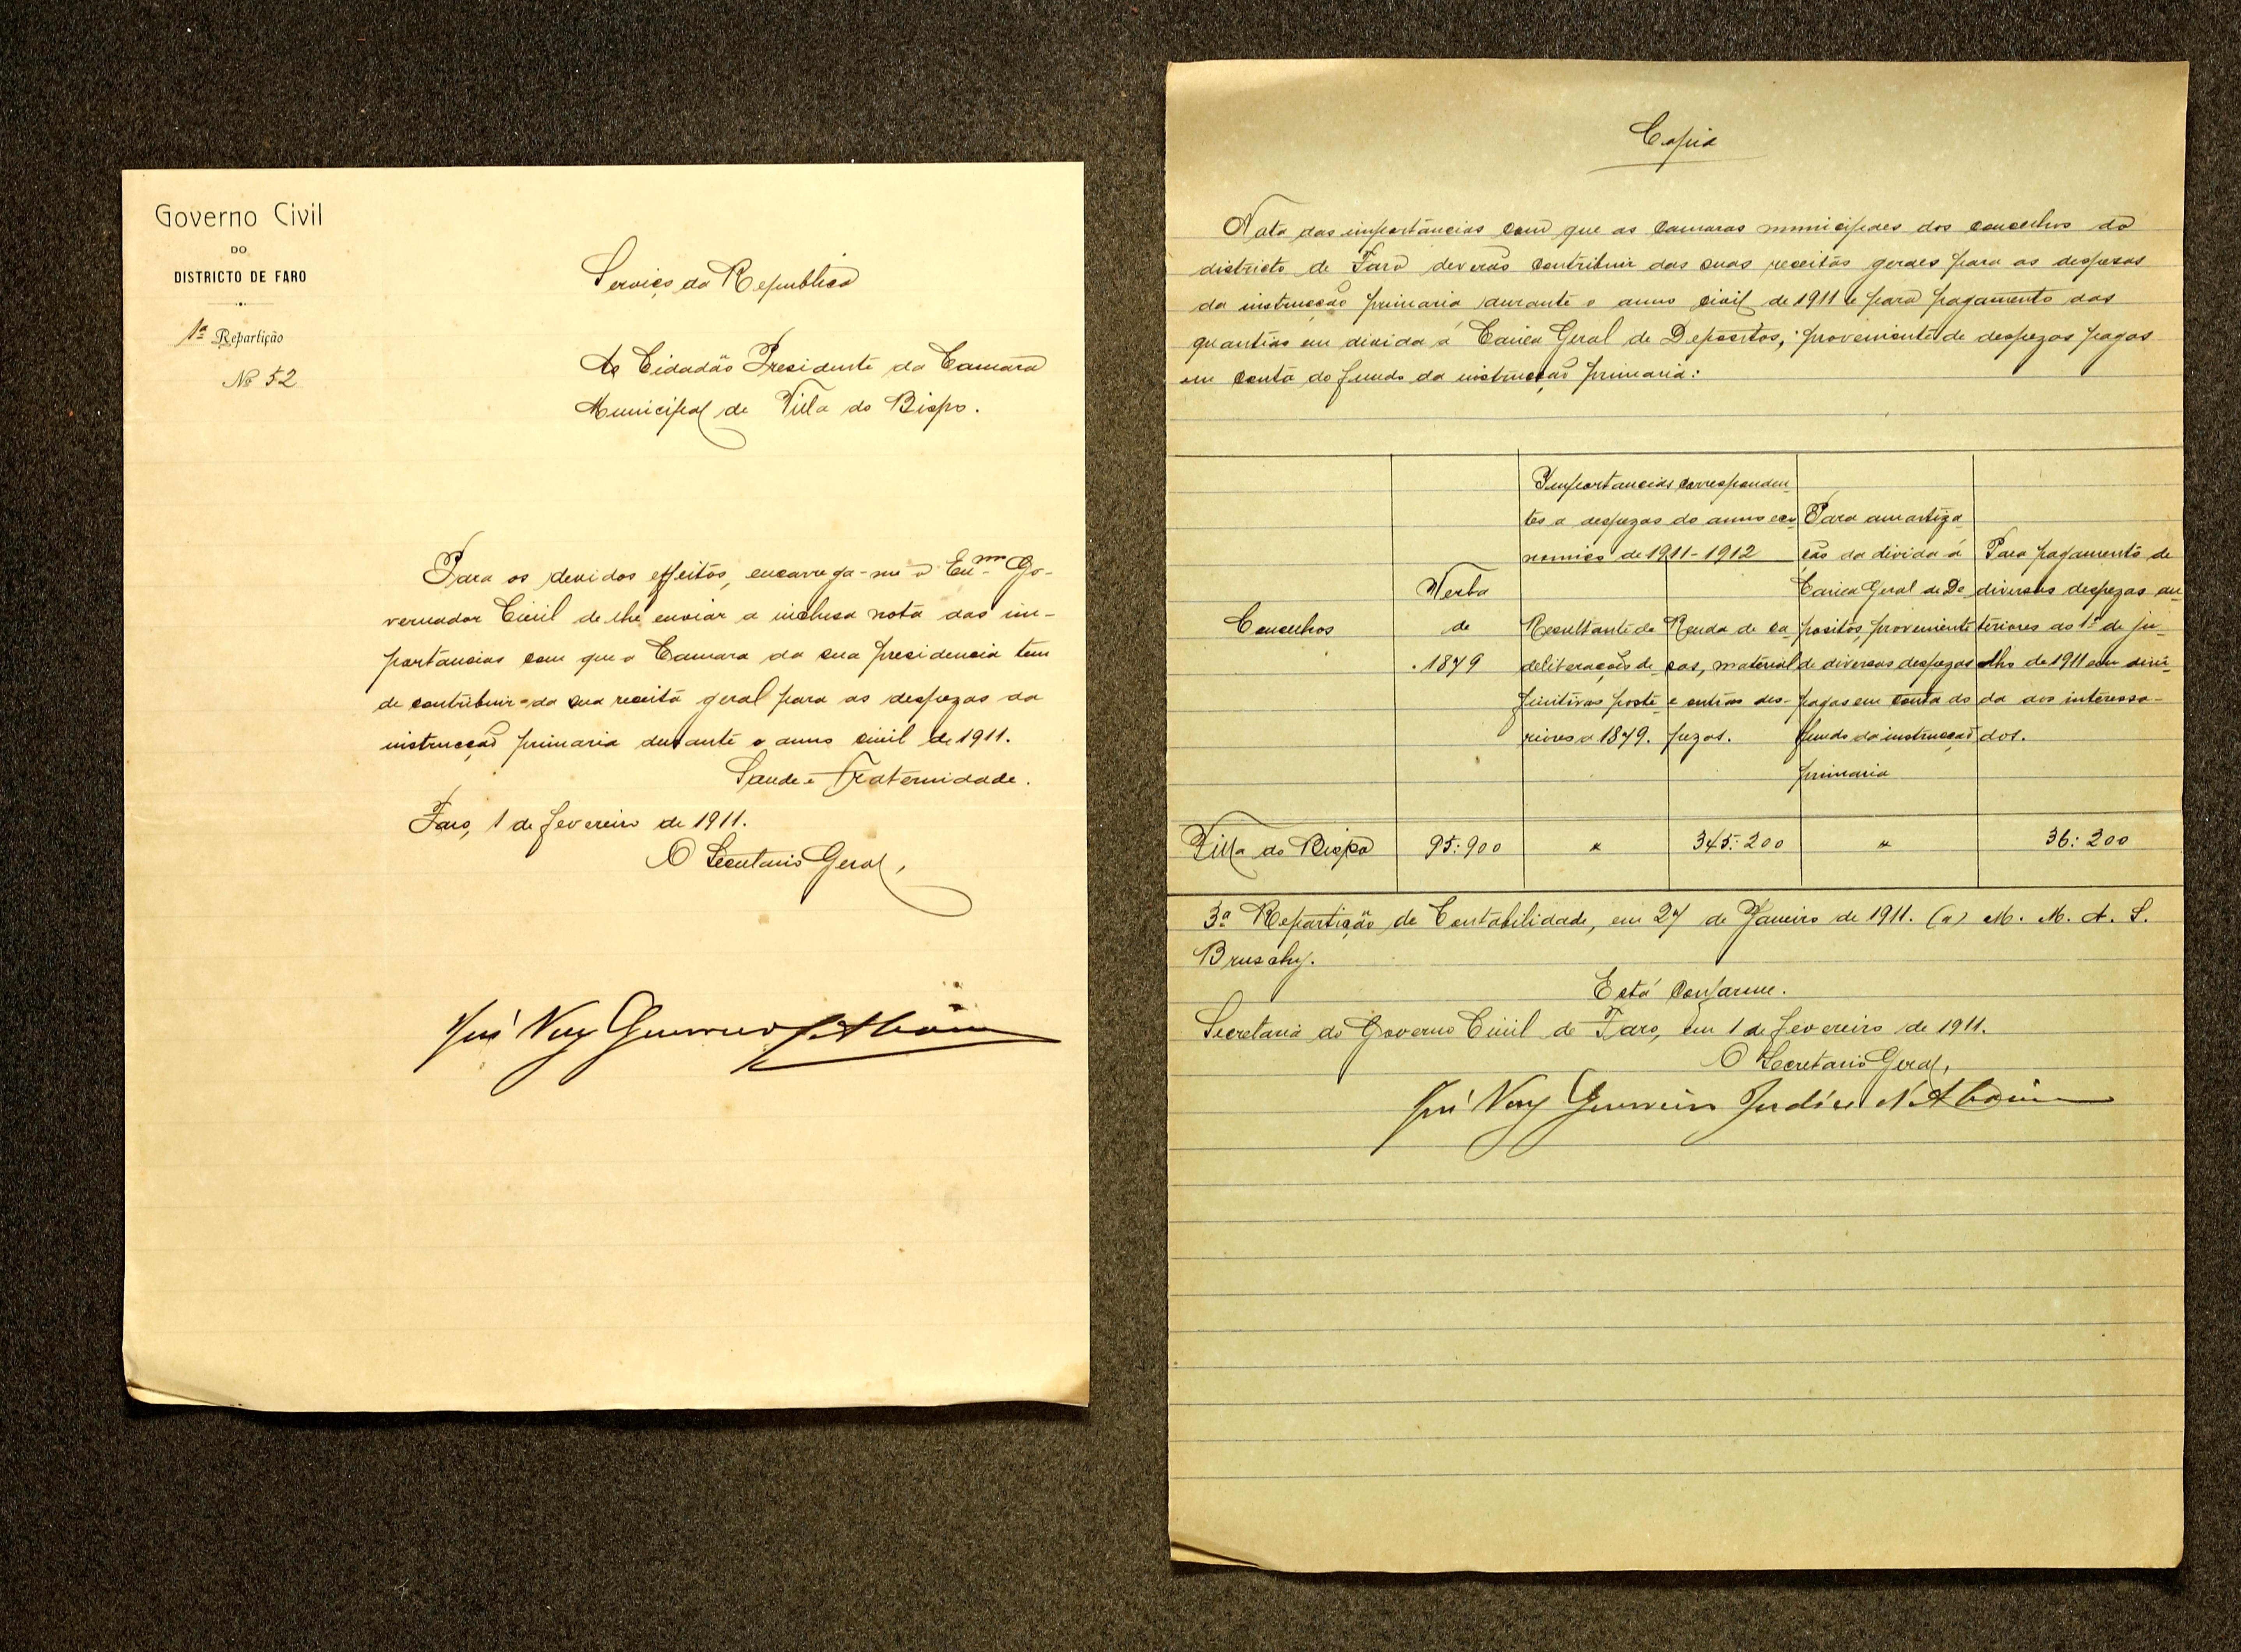 Governo Civil
DO
DISTRICTO DE FARO
1ª Repartição
Nº 52
Serviço da Republica
Ao Cidadão Presidente da Camara
Municipal de Villa do Bispo.
Para os devidos effeitos, encarrega-me o Exmo Go-
vernador Civil de lhe enviar a inclusa nota das im-
portancias com que a Camara da sua presidencia tem
de contribuir da sua receita geral para as despezas da
instrucção primaria durante o anno civil de 1911.
Saude e Fraternidade.
Faro, 1 de fevereiro de 1911.
O Secretario Geral,
José Guerreiro d'Aboim
Copia
Nota das importancias com que as camaras municipaes dos concelhos do
districto de Faro deverão contribuir das suas receitas geraes para as despesas
da instrucção primaria durante o anno civil de 1911 e para pagamento das
quantias em divida á Caixa Geral de Depositos, proveniente de despezas pagas
em conta do fundo da instrucção primaria:
Concelhos
Verba
de
1879
Importancias corresponden-
tes a despezas do anno eco-
nomico de 1911-1912
Resultante de
deliberações de-
finitivas poste-
riores a 1879.
Renda de ca-
sas, material
e outras des-
pezas.
Para amortiza-
ção da divida á
Caixa Geral de De-
positos, proveniente
de diversas despezas
pagas em conta do
fundo da instrucção
primaria
Para pagamento de
diversas despezas an-
teriores ao 1º de ju-
lho de 1911 em divi-
da aos interessa-
dos.
Villa do Bispo 95:900 " 345:200 " 36:200
3ª Repartição de Contabilidade, em 27 de Janeiro de 1911. (a) M. M. A. S.
Bruschy.
Está conforme.
Secretaria do Governo Civil de Faro, em 1 de fevereiro de 1911.
O Secretario Geral,
José Guerreiro Judice d'Aboim